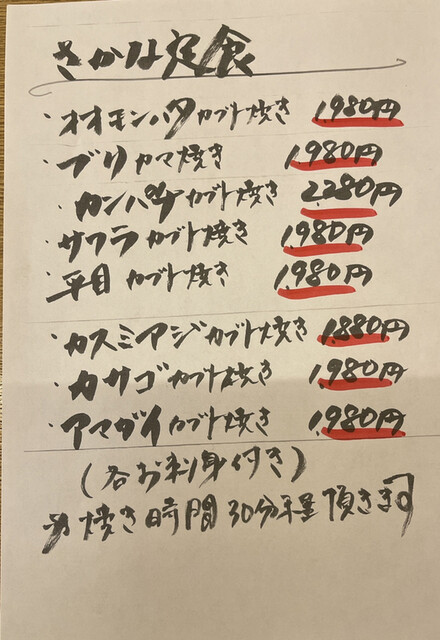 さかな定食
・オオモンハタカブト焼き 1,980円
・ブリカマ焼き 1,980円
カンパチカブト焼き 2,280円
・サワラカブト焼き 1,980円
・平目カブト焼き 1,980円
・カスミアジカブト焼き 1,880円
・カサゴカブト焼き 1,980円
・アマダイカブト焼き 1,980円
(各お刺身付き)
※焼き時間30分程頂きます